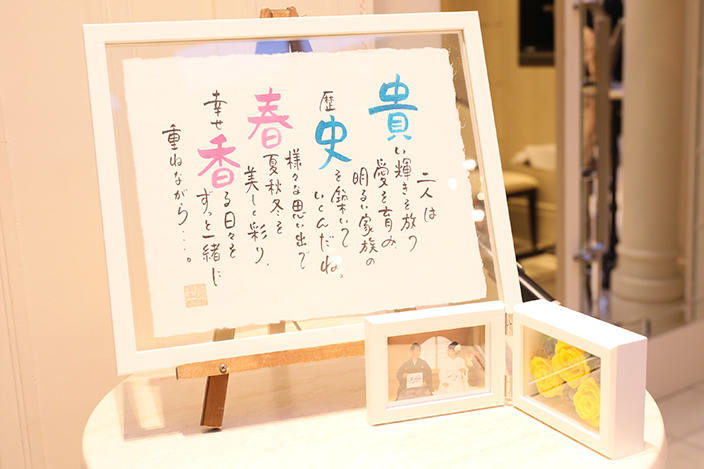 二人は
貴い輝きを放つ
愛を育み
明るい家族の
歴史を築いて
いくんだね。
様々な思い出で
春夏秋冬を
美しく彩り、
幸せ香る日々を
ずっと一緒に
重ねながら・・・。